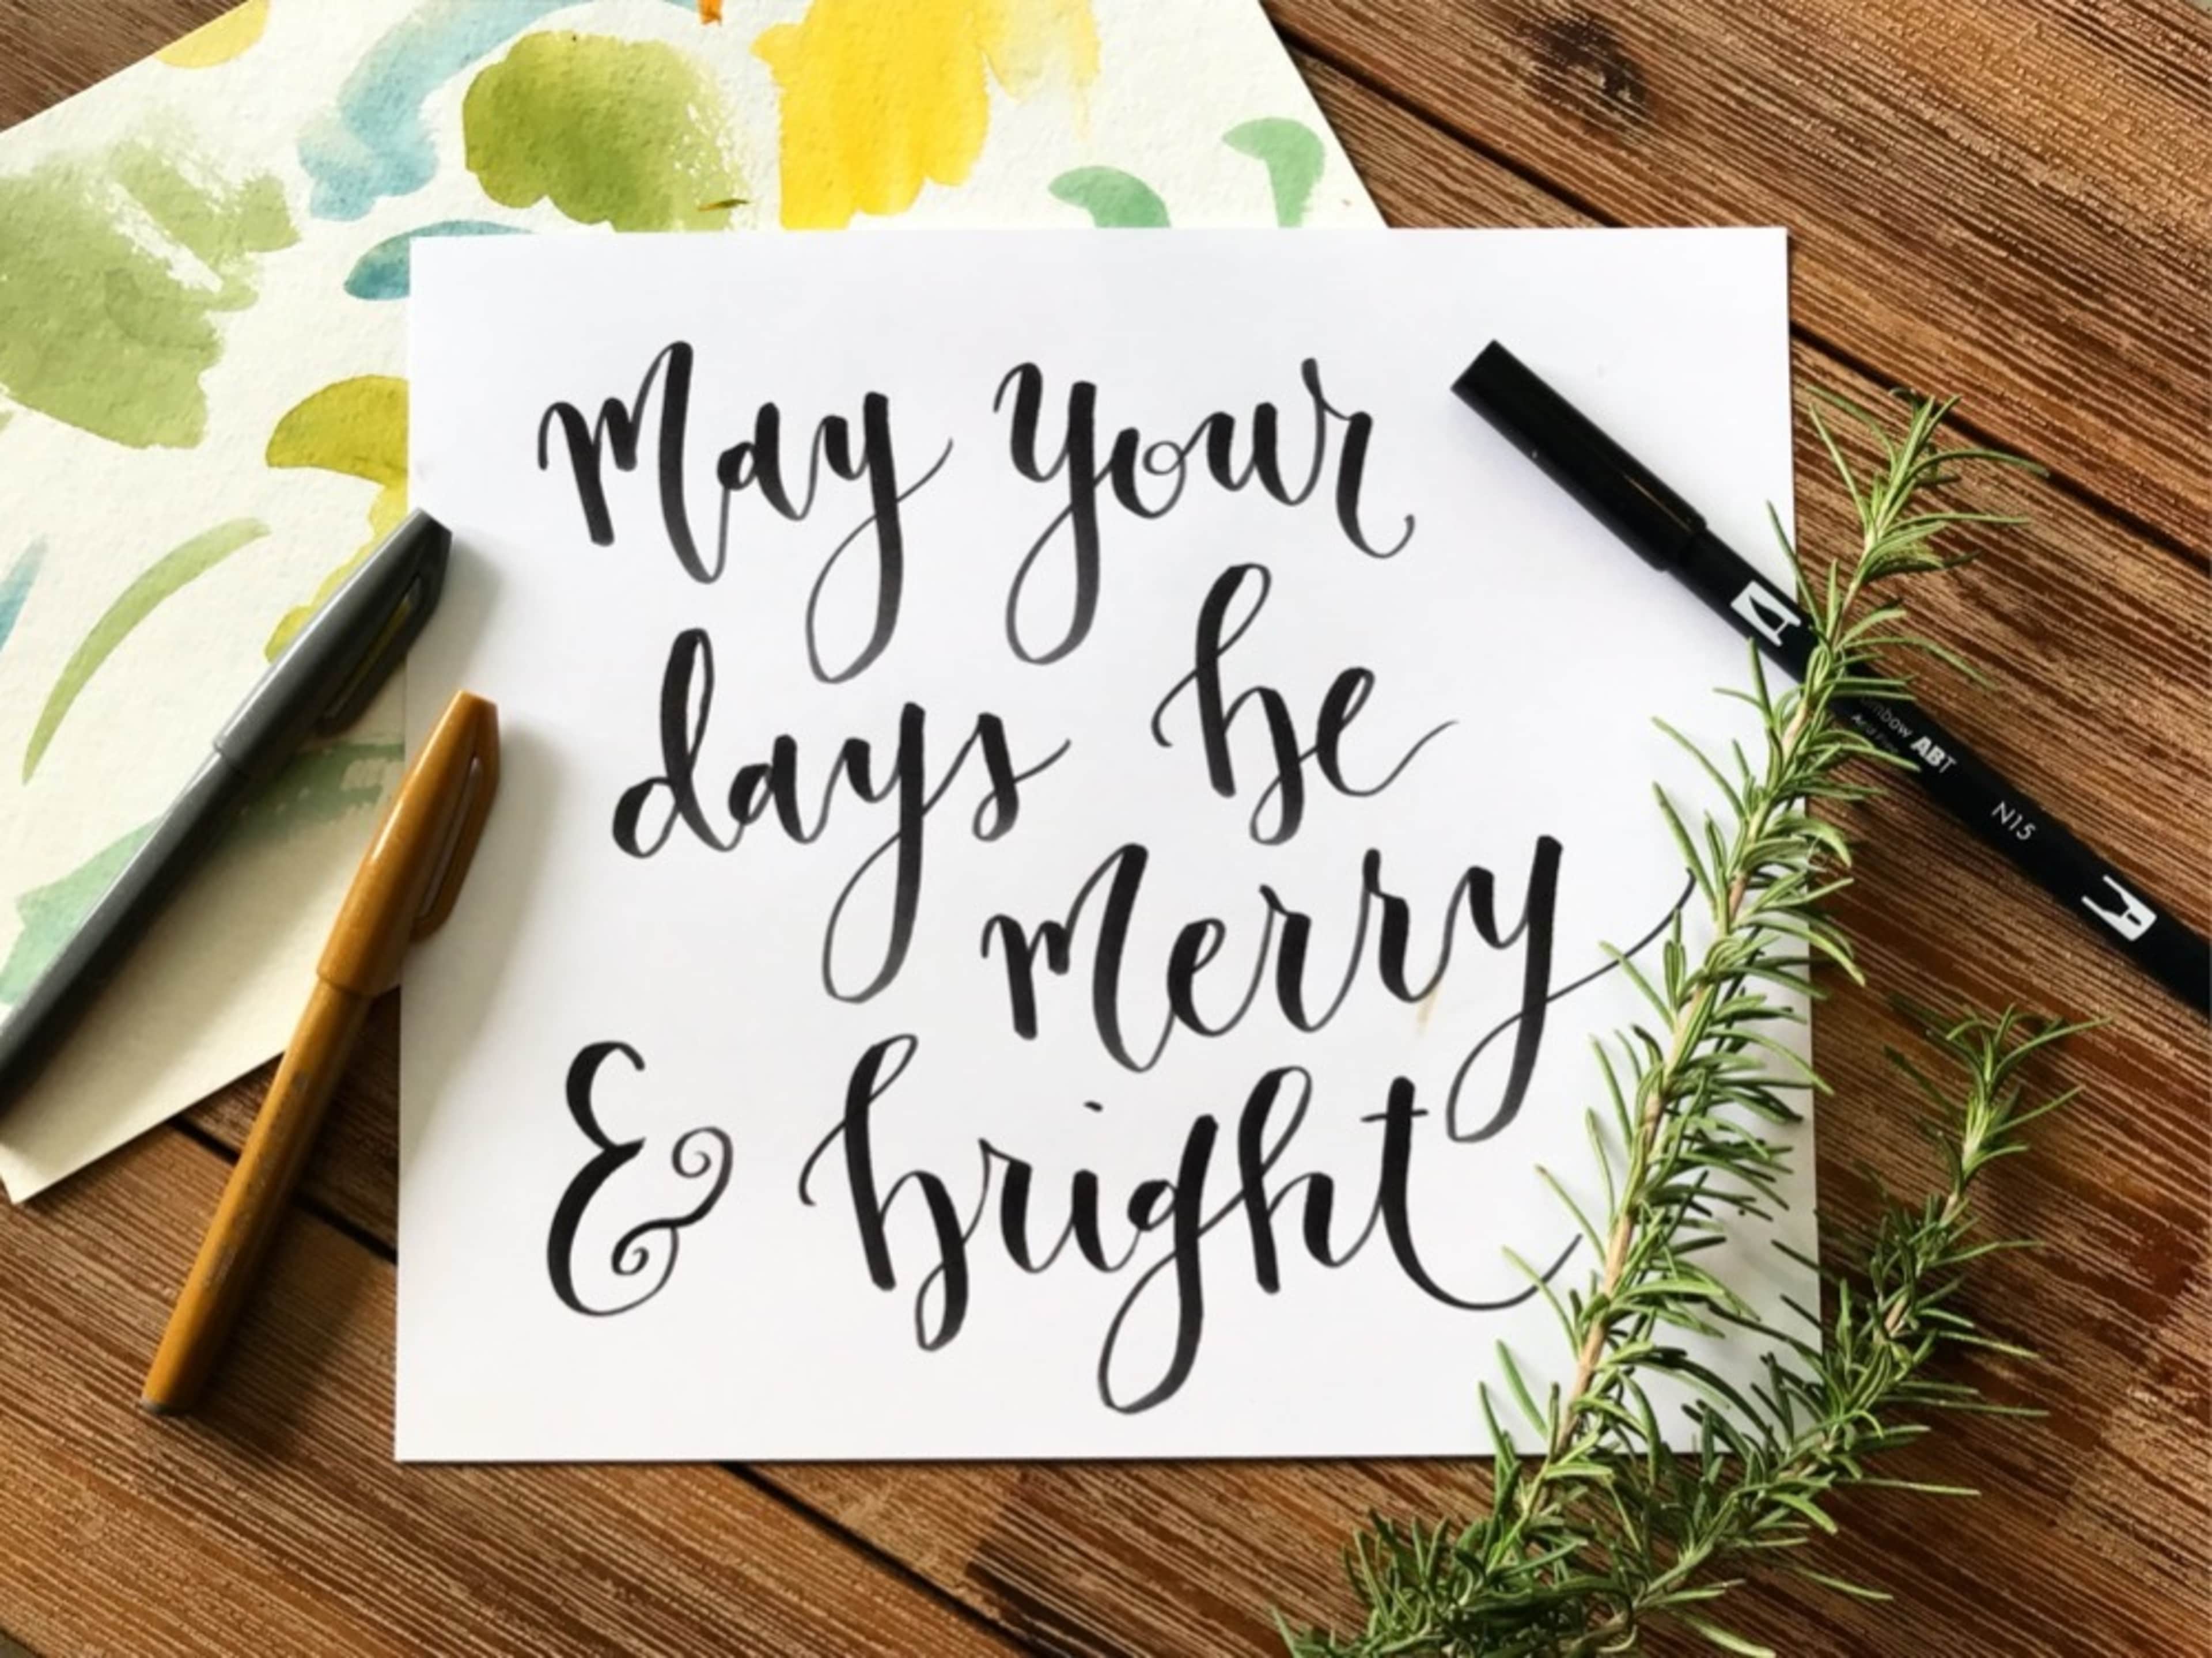 May your
days be
Merry
& bright
ABT
N15